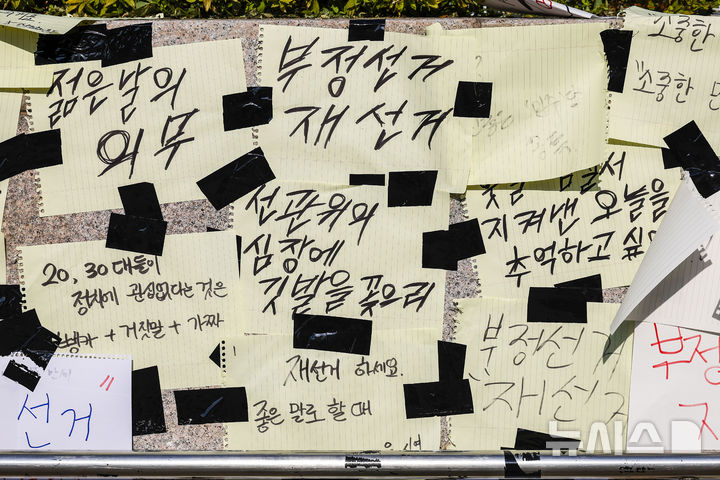 젊은날의
의무
부정선거
재선거
소중한
"소중한
선관위의
심장에
깃발을 꽂으리
지켜낸 오늘을
추억하고 싶
20, 30대들이
정치에 관심없다는 것은
+ 거짓말 + 가짜
재선거 하세요.
좋은 말로 할 때
부정선거
재선거
선거
부정
뉴시스